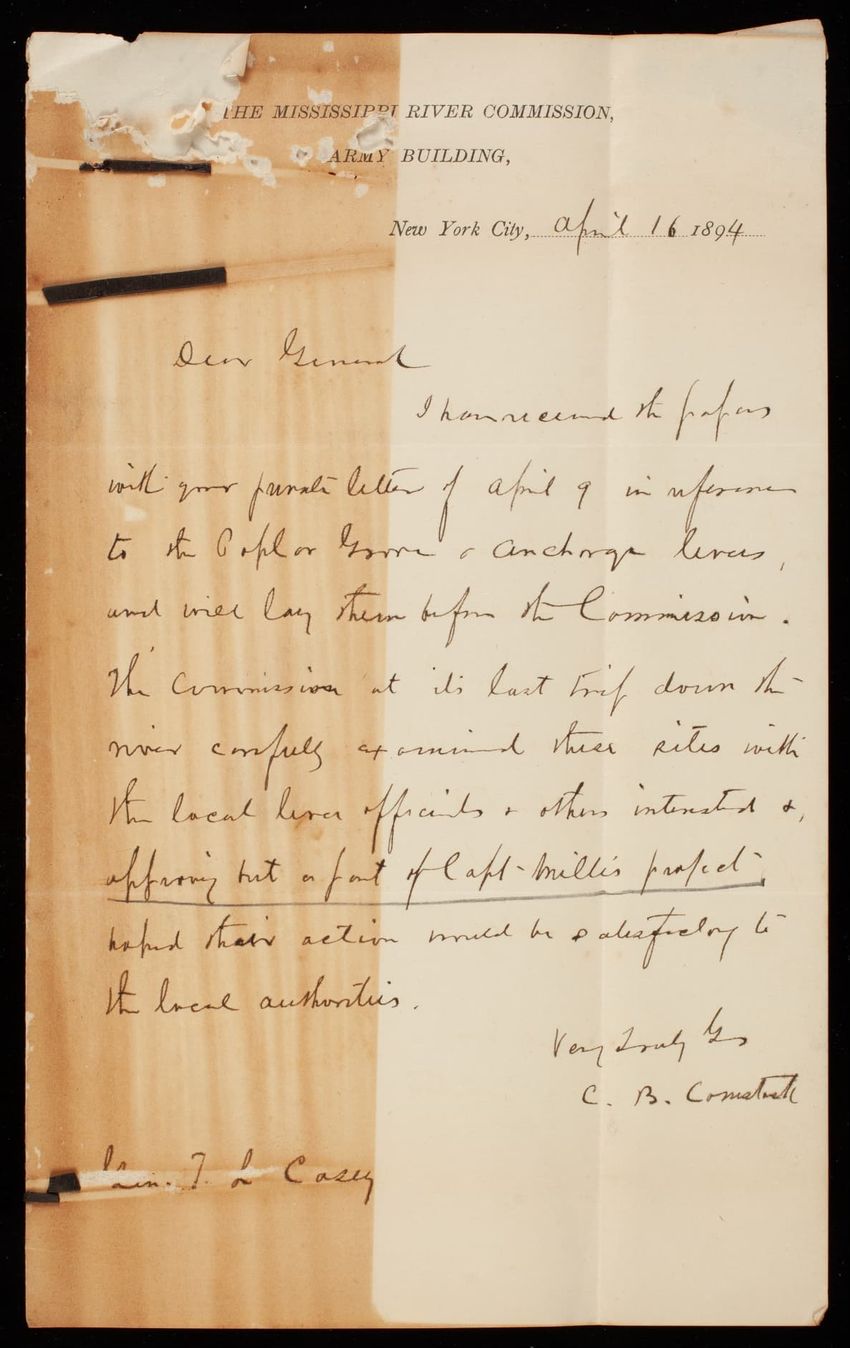 THE MISSISSIPPI RIVER COMMISSION,
ARMY BUILDING,
New York City, April 16 1894
Dear General
I have received the papers
with your private letter of April 9 in reference
to the Poplar Grove & Anchorage levees,
and will lay them before the Commission.
The Commission at its last trip down the
river carefully examined these sites with
the local levee officials & others interested &,
approving but a part of Capt. Millis project,
hoped their action would be satisfactory to
the local authorities.
Very Truly Yrs
C. B. Comstock
Gen. T. L. Casey